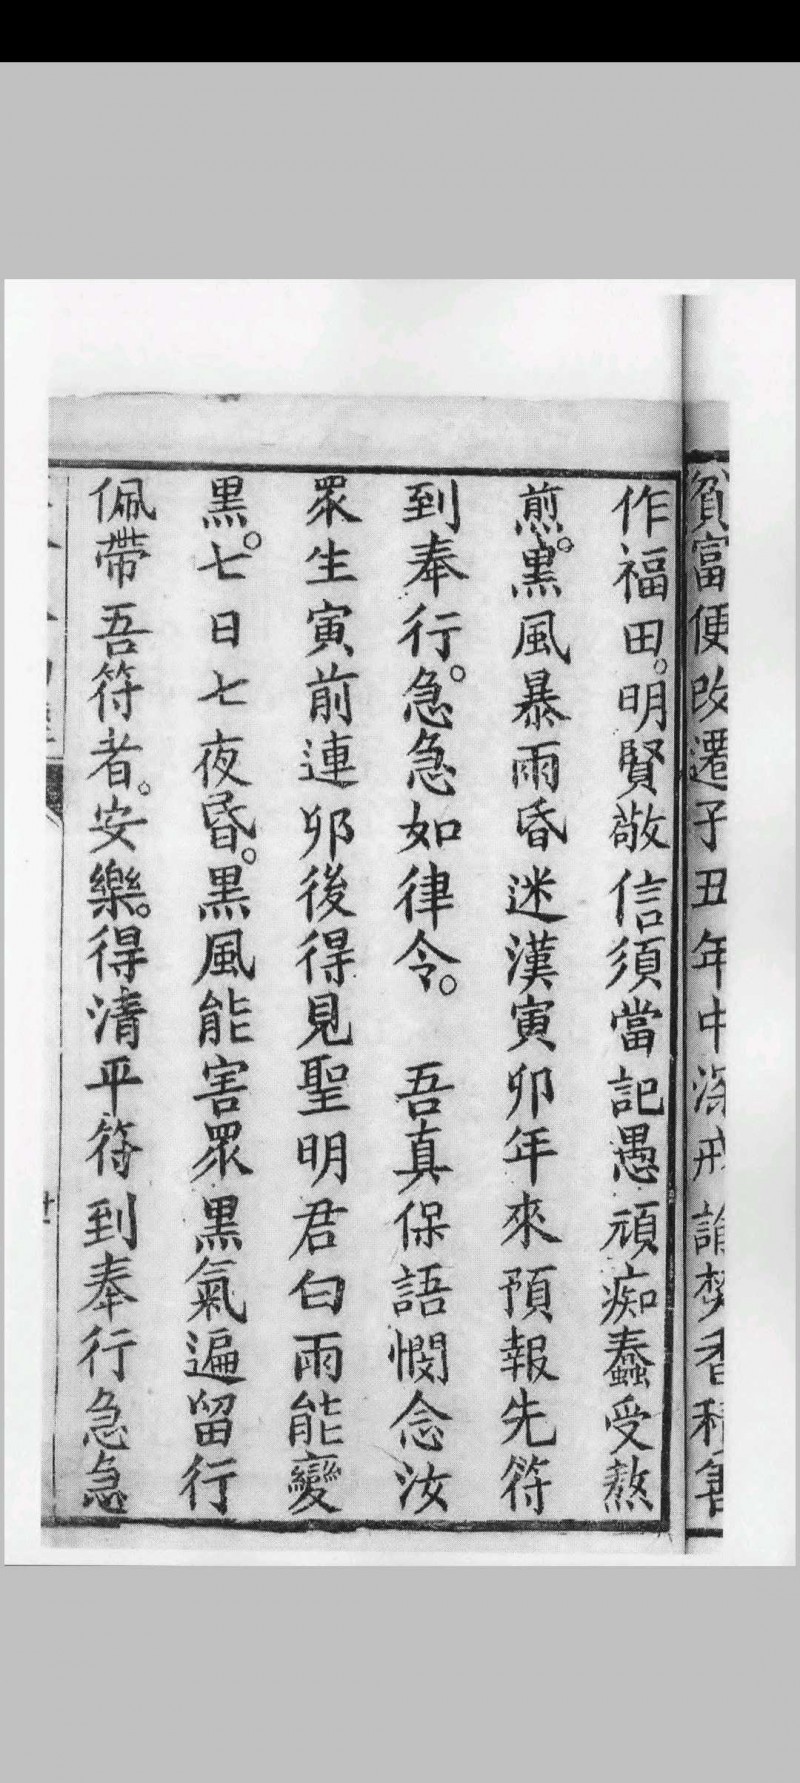 貧富便改遷子丑年中深戒論焚香積善
作福田。明賢敬信須當記愚頑痴蠢受熬
煎。黑風暴雨昏迷漢寅卯年來預報先符
到奉行。急急如律令。　吾真保語憫念汝
眾生寅前連卯後得見聖明君白雨能變
黑。七日七夜昏。黑風能害眾黑氣遍留行
佩帶吾符者。安樂。得清平符到奉行急急